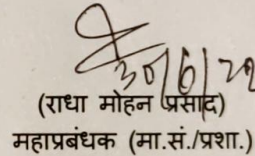 30/6/22
(राधा मोहन प्रसाद)
महाप्रबंधक (मा.सं./प्रशा.)